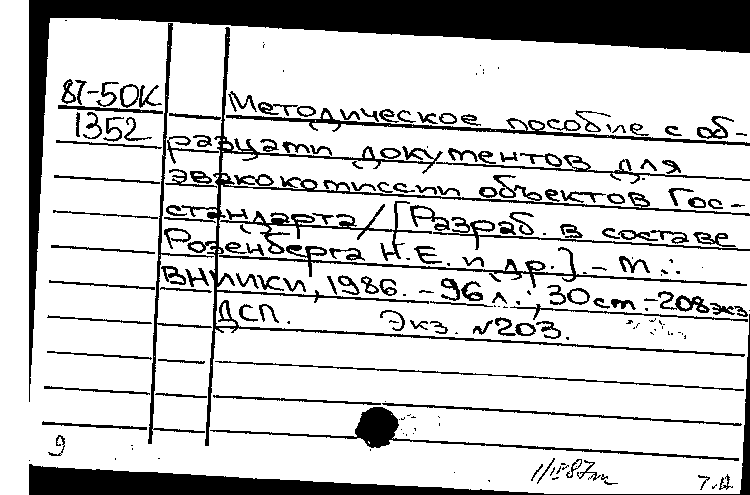 87-50К
1352
Методическое пособие с об-
разцами документов для
эвакокомиссии объектов Гос-
стандарта / [Разраб. в составе
Розенберга Н.Е. и др.] – М.:
ВНИИКИ, 1986. – 96 л.; 30 см. – 208 экз
ДСП. Экз. №203.
9